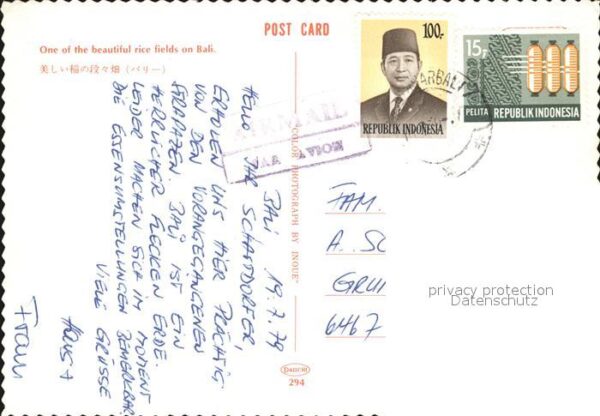 POST CARD
One of the beautiful rice fields on Bali.
美しい稲の段々畑（バリー）
100,-
REPUBLIK INDONESIA
15,-
PELITA REPUBLIK INDONESIA
AIRMAIL
PAR AVION
COLOR PHOTOGRAPH BY INOUE
BALI 19.7.79
HALLO, IHR SCHAGDORFER,
ERHOLEN UNS HIER PRÄCHTIG
VON DEN VORANGEGANGENEN
STRAPAZEN. BALI IST EIN
HERRLICHER FLECKEN ERDE.
LEIDER MACHEN SICH IM MOMENT
DIE ESSENSUMSTELLUNGEN BEMERKBAR
VIELE GRÜSSE
HANS +
FAM.
A. SC
GRUI
6467
privacy protection
Datenschutz
294